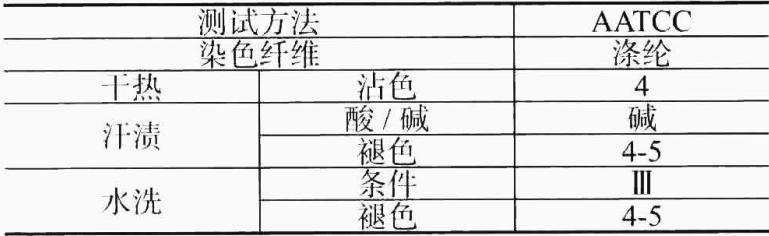 测试方法 AATCC
染色纤维 涤纶
干热 沾色 4
汗渍 酸/碱 碱
褪色 4-5
水洗 条件 Ⅲ
褪色 4-5